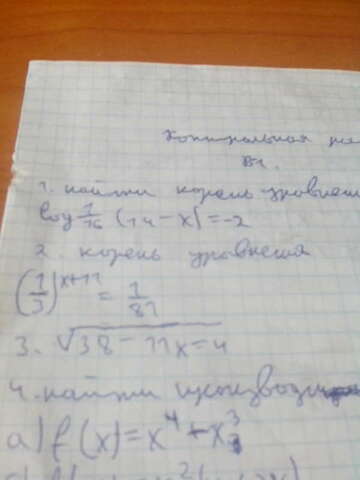 Контрольная ра
В1.
1. найти корень уравнени
log 1/16 (14 - x) = -2
2. корень уравнения
(1/3)^x+11 = 1/81
3. √38 - 11x = 4
4. найти
а) f(x) = x^4 + x^3